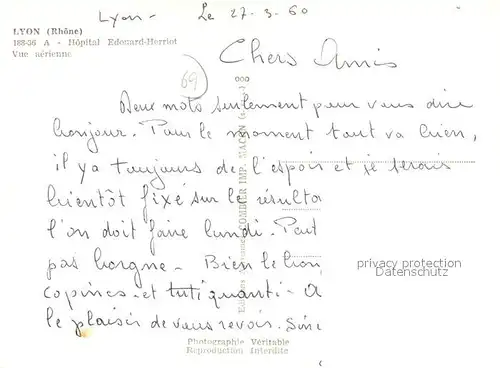 Lyon - Le 27-3-60
LYON (Rhône)
188-56 A - Hôpital Edouard-Herriot
Vue aérienne
Chers Amis
69
Deux mots seulement pour vous dire
bonjour. Pour le moment tout va bien,
il y a toujours de l'espoir et je serais
bientôt fixé sur le résulta
l'on doit faire lundi. Peut
pas borgne - Bien le bon
copines. et tuti quanti - A
le plaisir de vous revoir.
COMBIER IMP. MACON
privacy protection
Datenschutz
Photographie Véritable
Reproduction Interdite